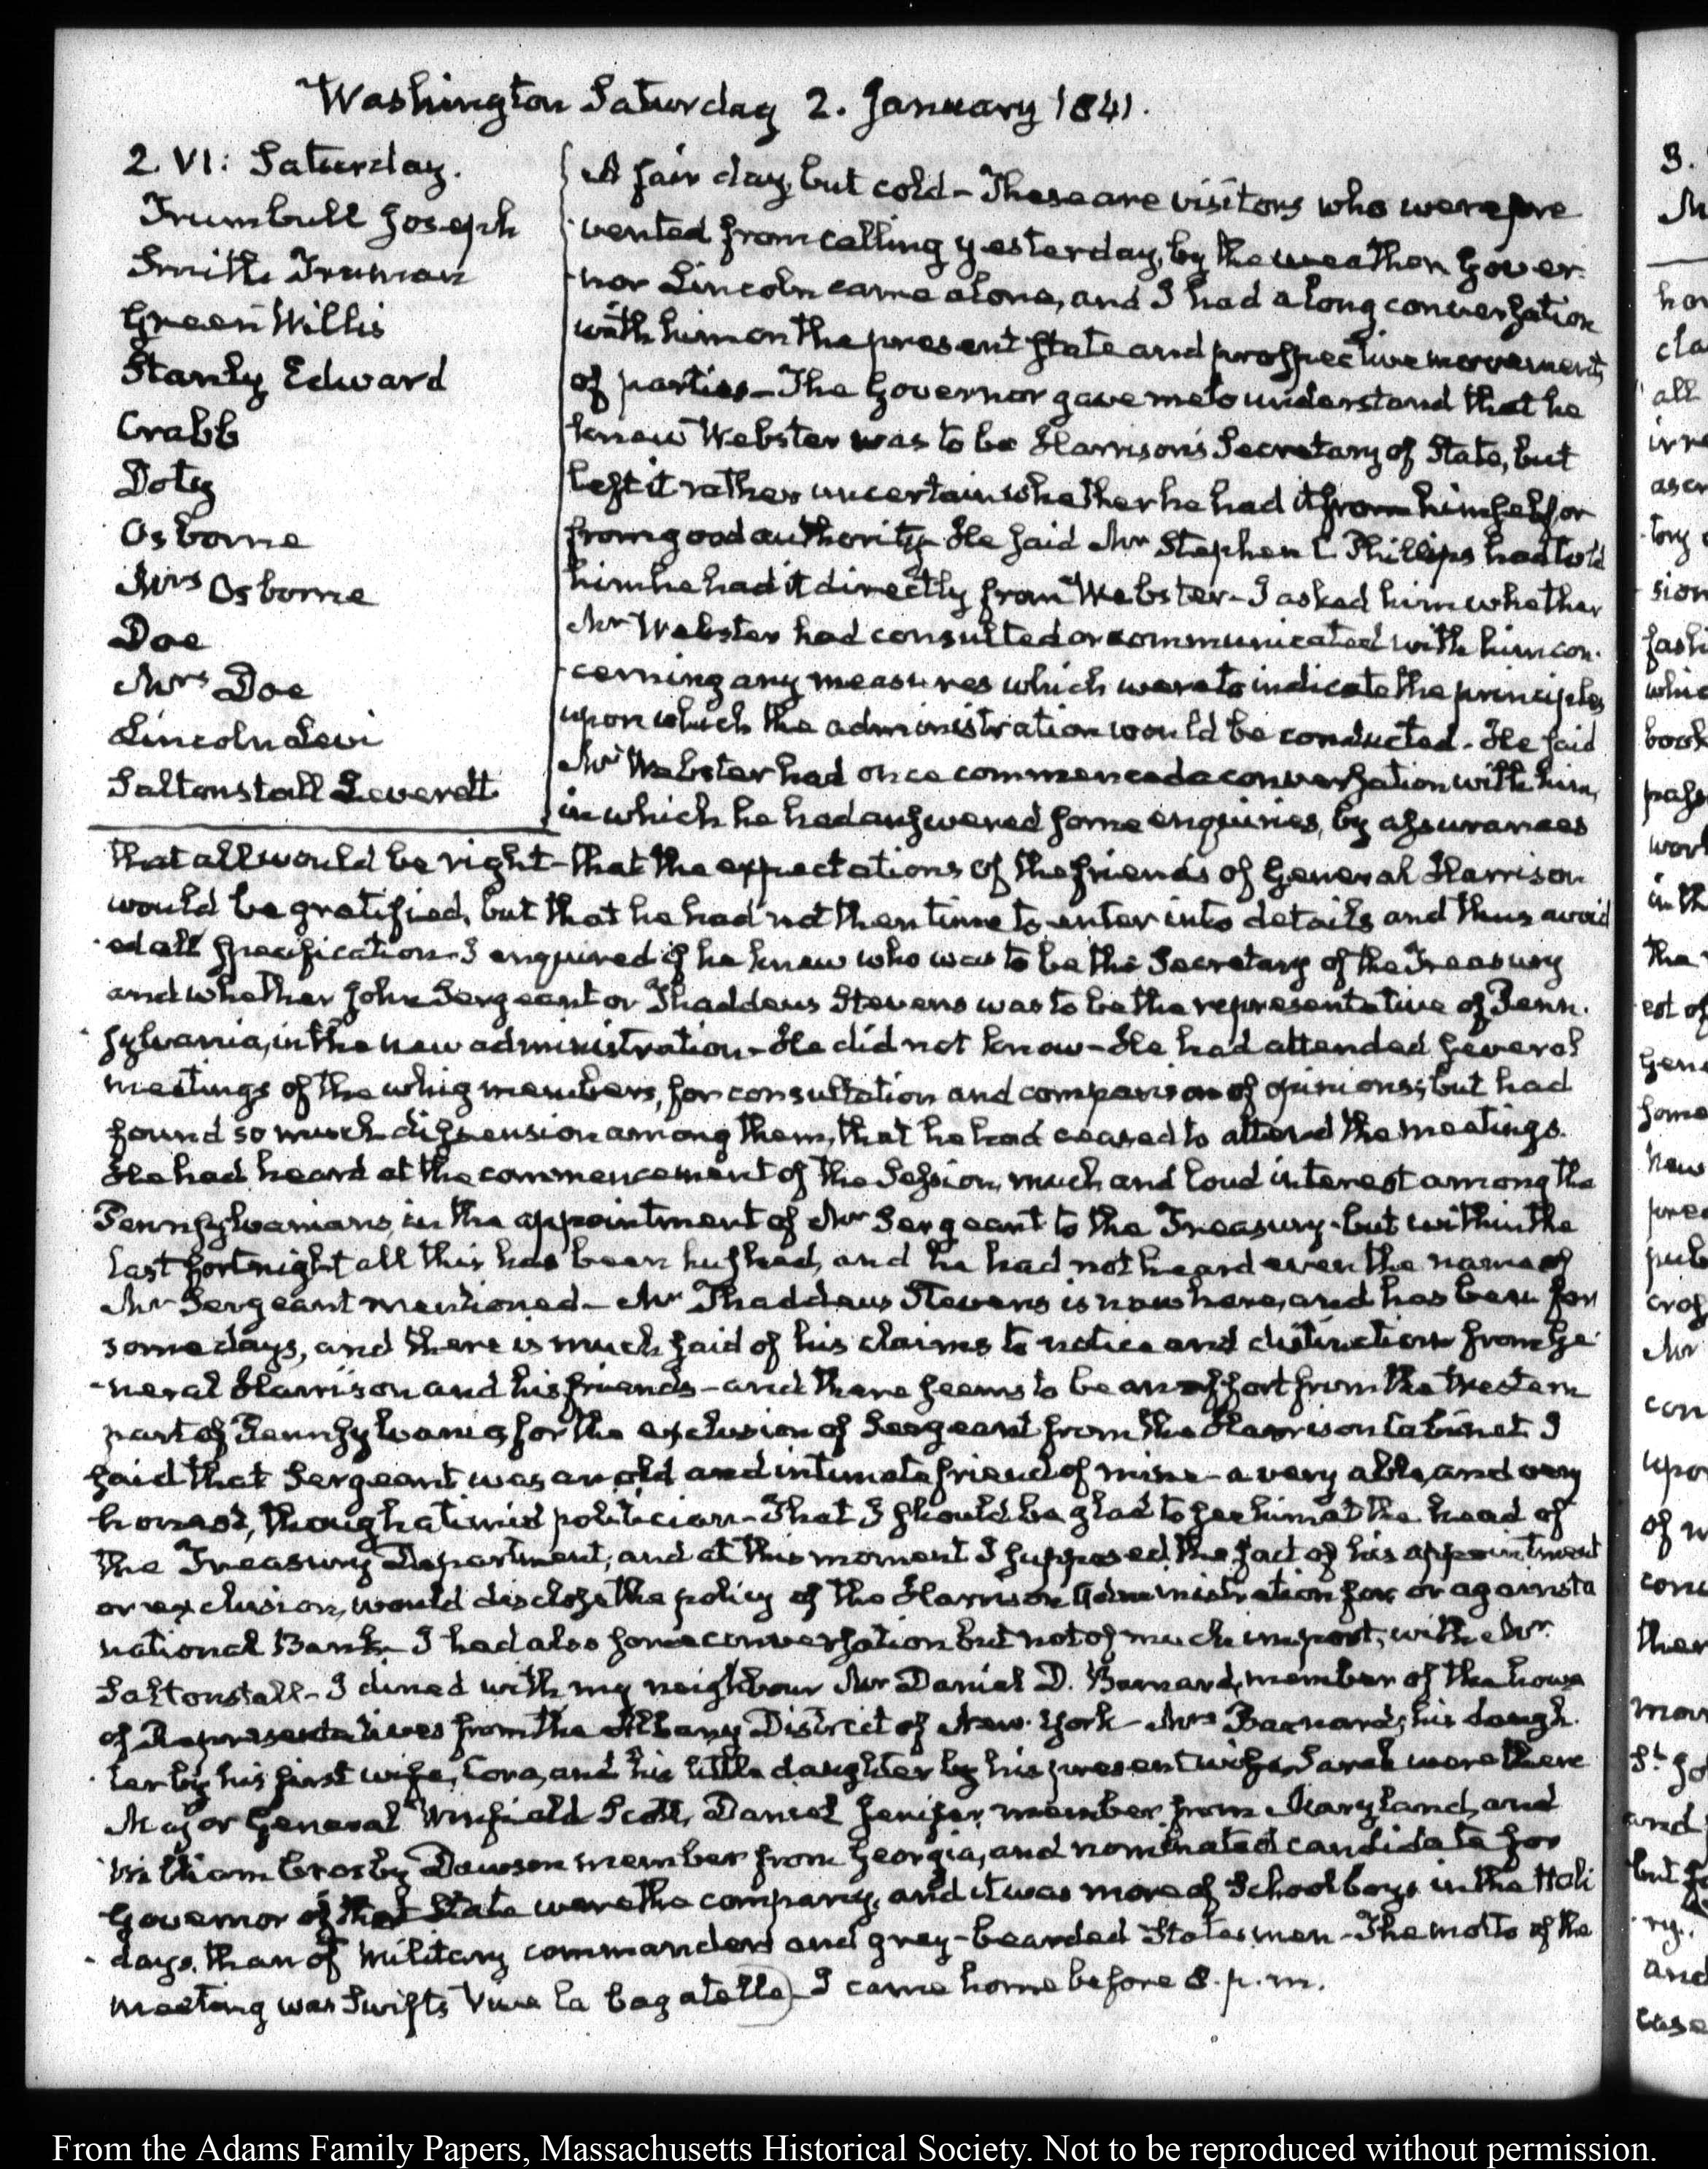 Washington Saturday 2. January 1841.
2. VI: Saturday.
Trumbull Joseph
Smith Truman
Green Willis
Stanly Edward
Crabb
Doty
Osborne
Mrs Osborne
Doe
Mrs Doe
Lincoln Levi
Saltonstall Leverett
A fair day, but cold – These are visitors who were pre
vented from calling yesterday, by the weather Gover-
nor Lincoln came alone, and I had a long conversation
with him on the present state and prospective movements
of parties – The Governor gave me to understand that he
knew Webster was to be Harrison's Secretary of State, but
left it rather uncertain whether he had it from himself or
from good authority – He said Mr Stephen C Phillips had told
him he had it directly from Webster – I asked him whether
Mr Webster had consulted or communicated with him con-
cerning any measures which were to indicate the principles
upon which the administration would be conducted – He said
Mr Webster had once commenced a conversation with him,
in which he had answered some enquiries, by assurances
that all would be right – that the expectations of the friends of General Harrison
would be gratified, but that he had not then time to enter into details and thus avoid
ed all specification – I enquired if he knew who was to be the Secretary of the Treasury
and whether John Sergeant or Thaddeus Stevens was to be the representative of Penn-
sylvania, in the new administration – He did not know – He had attended several
meetings of the whig members, for consultation and comparison of opinions; but had
found so much dissension among them, that he had ceased to attend the meetings.
He had heard at the commencement of the Session, much and loud interest among the
Pennsylvanians, in the appointment of Mr Sergeant to the Treasury – but within the
last fortnight all this has been hushed, and he had not heard even the name of
Mr Sergeant mentioned – Mr Thaddeus Stevens is now here, and has been for
some days, and there is much said of his claims to notice and distinction from Ge-
neral Harrison and his friends – and there seems to be an effort from the Western
part of Pennsylvania for the exclusion of Sergeant from the Harrison Cabinet I
said that Sergeant was an old and intimate friend of mine – a very able, and very
honest, though a timid politician – That I should be glad to see him at the head of
the Treasury Department, and at this moment I supposed the fact of his appointment
or exclusion, would disclose the policy of the Harrison Administration for or against a
national Bank – I had also some conversation but not of much import, with Mr.
Saltonstall – I dined with my neighbour Mr Daniel D. Barnard, member of the house
of Representatives from the Albany District of New-York – Mrs Barnard, his daugh-
ter by his first wife, Cora, and his little daughter by his present wife, Sarah were there
Major General Winfield Scott, Daniel Jenifer, member from Maryland, and
William Crosby Dawson member from Georgia, and nominated candidate for
Governor of that State were the company, and it was more of School boys in the Holi
days, than of military commanders and grey-bearded Statesmen – The motto of the
meeting was Swift's Vive la bagatelle – I came home before 8. p.m.
From the Adams Family Papers, Massachusetts Historical Society. Not to be reproduced without permission.